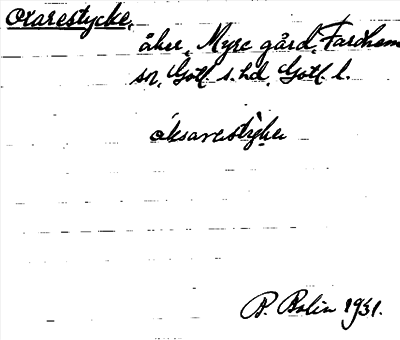 Oxarestycke,
åker, Myre gård, Fardhem
sn, Gotl. s. hd, Gotl. l.
óksarestỳkər
B. Bolin 1931.